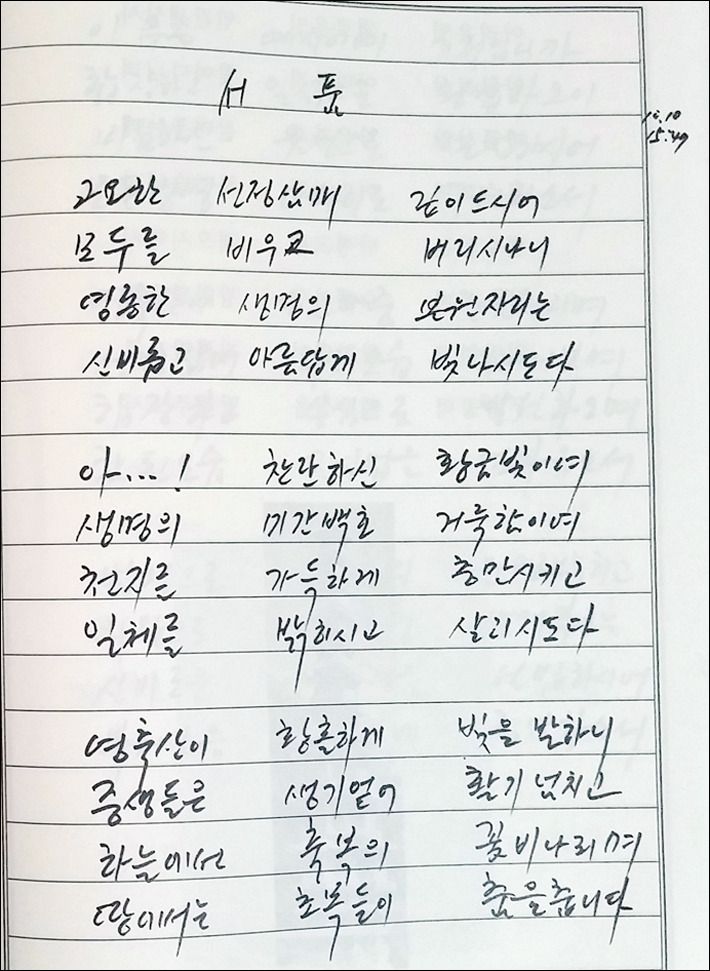 서품
12.10
15:49
고요한 선정삼매 깊이드시어
모두를 비우고 버리시나니
영롱한 생명의 본원자리는
신비롭고 아름답게 빛나시도다
아...! 찬란하신 황금빛이여
생명의 미간백호 거룩함이여
천지를 가득하게 충만시키고
일체를 밝히시고 살리시도다
영축산이 황홀하게 빛을 발하니
중생들은 생기얻어 활기 넘치고
하늘에선 축복의 꽃비나리며
땅에서는 초목들이 춤을춥니다